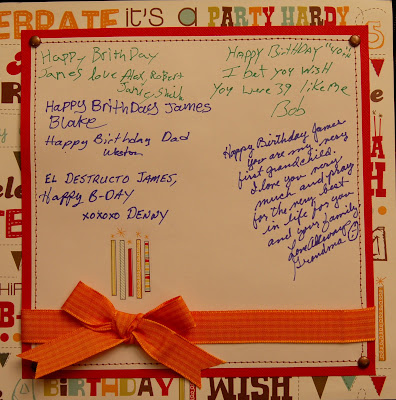 EBRATE it's a PARTY HARDY
Happy BrithDay
James love Alex, Robert
Janice Smith
Happy BirthDAY "40"
I bet you wish
You were 39 like me
Bob
Happy BrithDays James
Blake
Happy Birthday Dad
Weston
El Destructo James,
Happy B-Day
xoxoxo Denny
Happy Birthday James
You are my very
first grandchild.
I love you very
much and pray
for the very best
in life for you
and your family
Love Always
Grandma
BIRTHDAY WISH